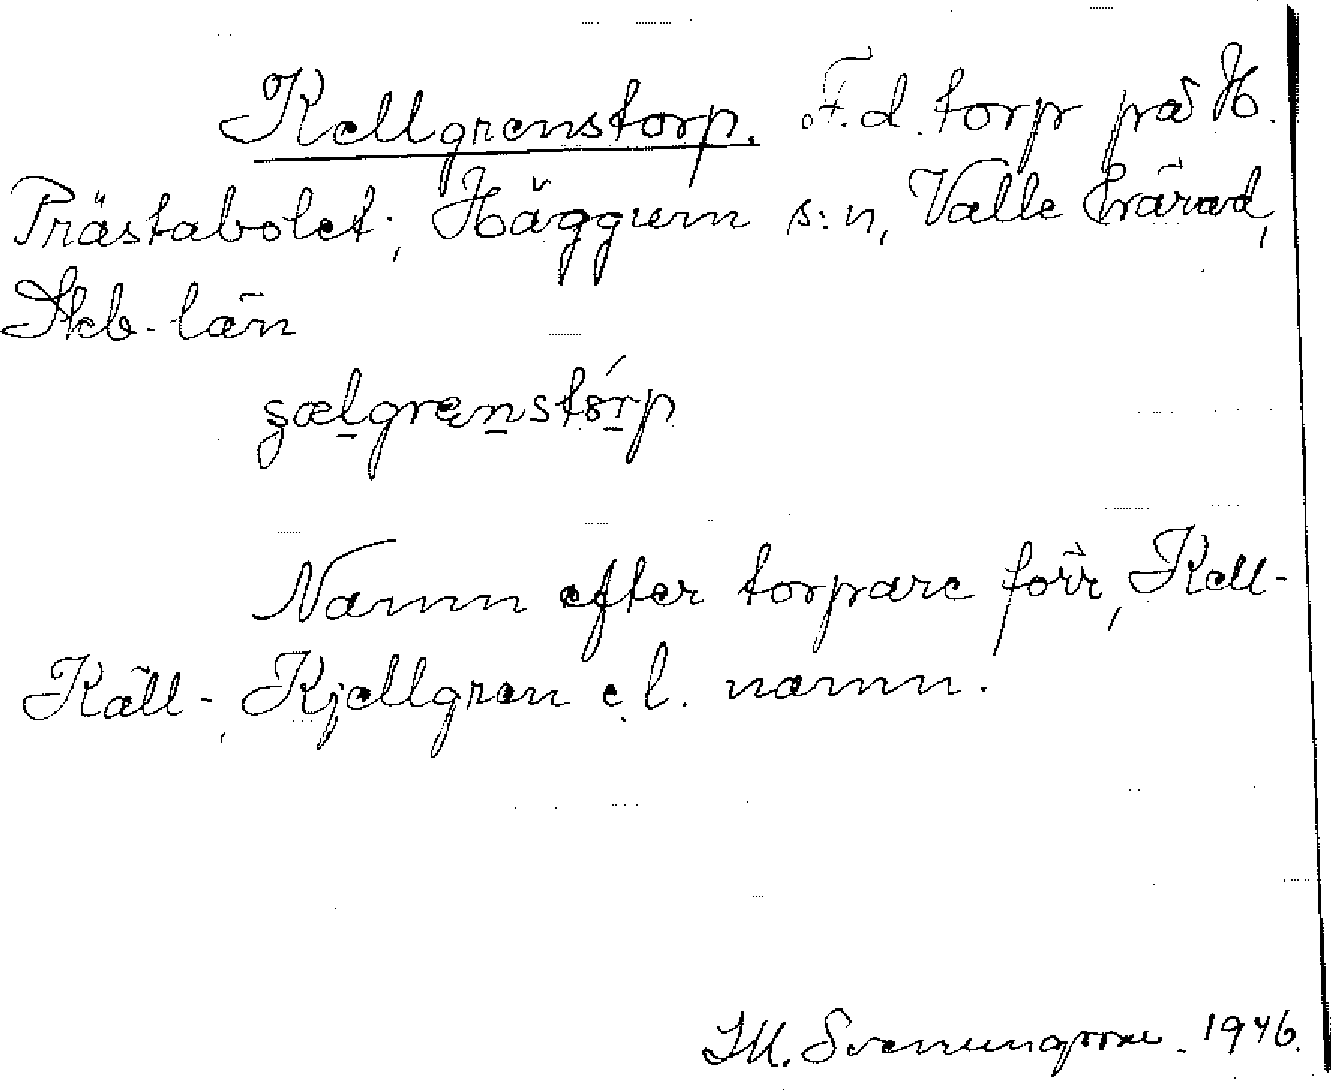 Kellgrenstorp. F.d. torp på H.
Prästabolet, Häggum s:n, Valle härad,
Skb-län
Namn efter torpare förr, Kell-
Käll-, Kjellgren e.l. namn.
Svenungsson. 1946.